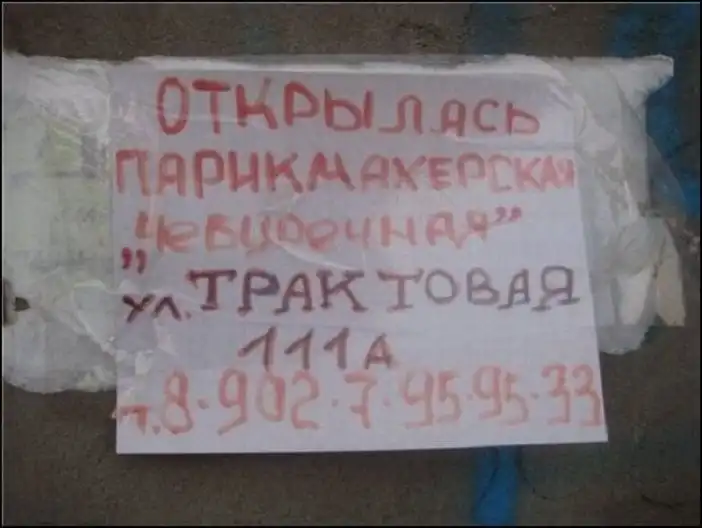 ОТКРЫЛАСЬ
ПАРИКМАХЕРСКАЯ
„Чевуоечная”
ул. ТРАКТОВАЯ
111А
т. 8-902-7-95-95-33